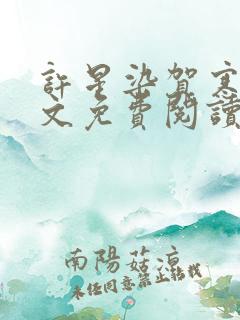 許星染賀寒
文免費閱讀
南陽菇涼
未经同意禁止转载